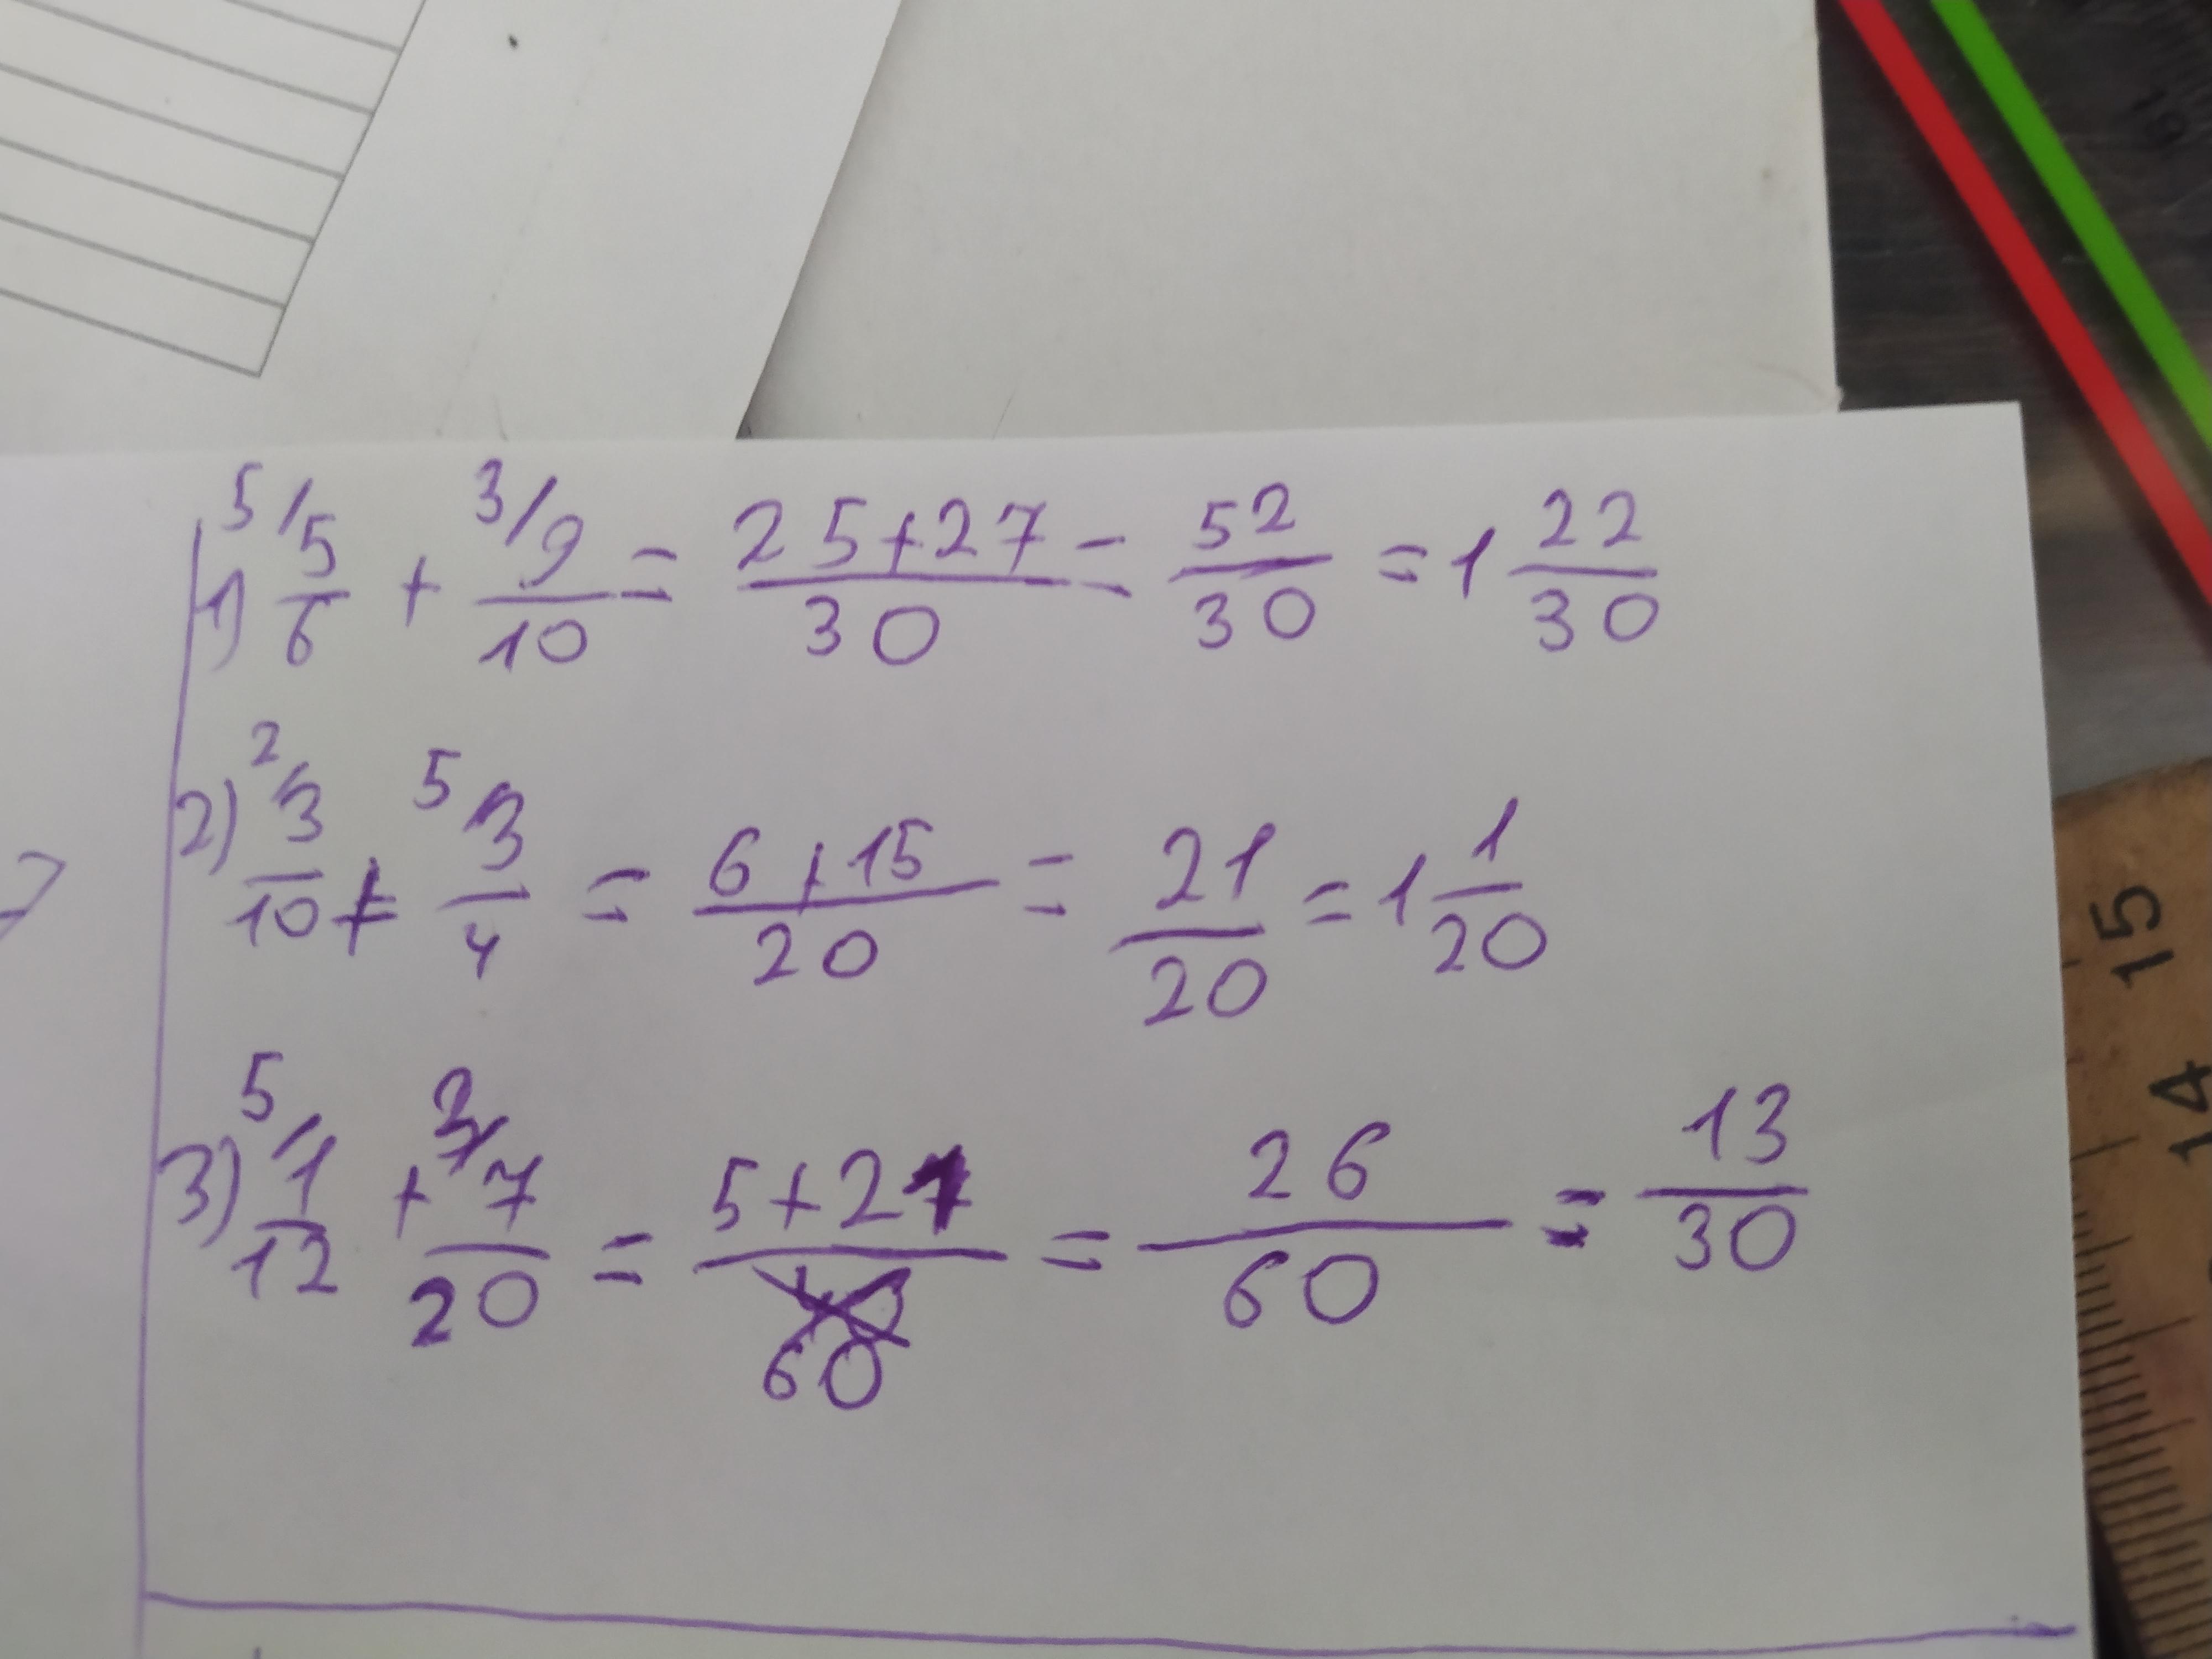 1) ⁵/5/6 + ³/9/10 = 25+27/30 = 52/30 = 1 22/30
2) ²/3/10 + ⁵/3/4 = 6+15/20 = 21/20 = 1 1/20
3) ⁵/1/12 + ³/7/20 = 5+21/60 = 26/60 = 13/30
15
14